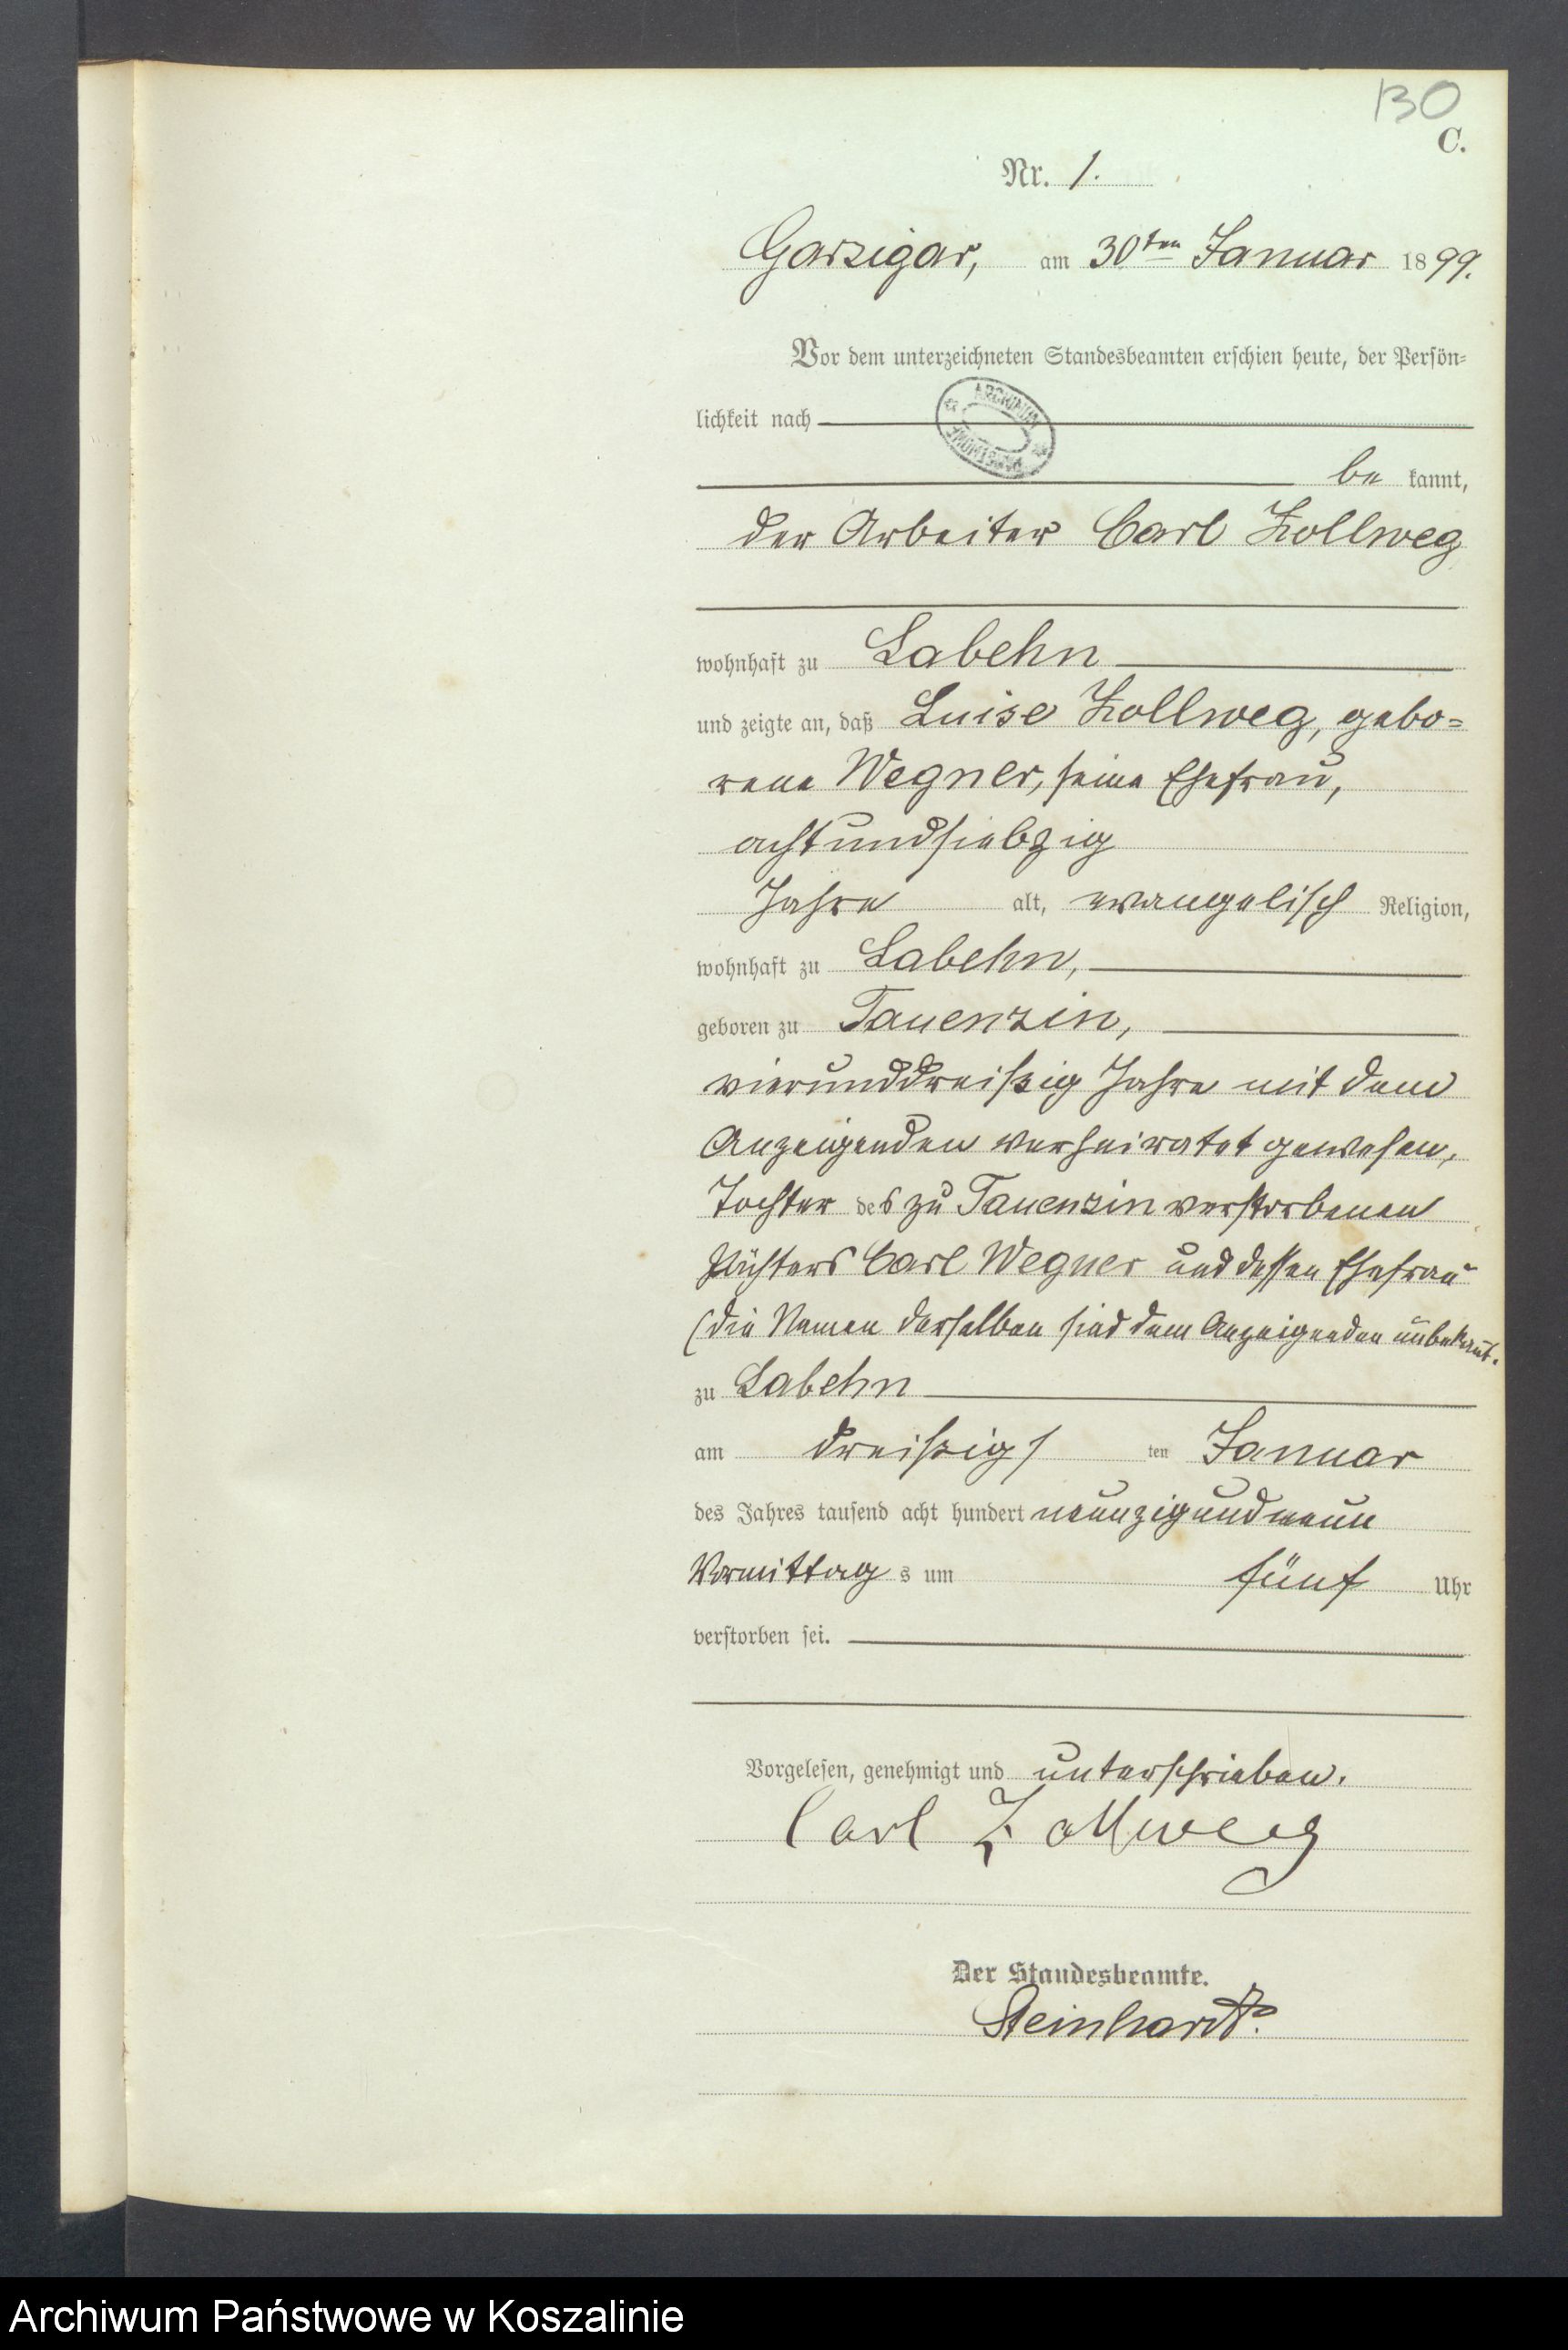 130
C.
Nr. 1.
Garzigar, am 30ten Januar 1899.
Vor dem unterzeichneten Standesbeamten erschien heute, der Persön-
lichkeit nach
ARCHIWUM
PAŃSTWOWE
be kannt,
der Arbeiter Carl Zollweg
wohnhaft zu Labehn
und zeigte an, daß Luise Zollweg, gebo-
rene Wegner, seine Ehefrau,
achtundsiebzig
Jahre alt, evangelisch Religion,
wohnhaft zu Labehn,
geboren zu Tauenzin,
vierunddreißig Jahre mit dem
Anzeigenden verheiratet gewesen,
Tochter des zu Tauenzin verstorbenen
Carl Wegner und dessen Ehefrau
(die Namen derselben sind dem Anzeigenden unbekannt.
zu Labehn
am dreißigs ten Januar
des Jahres tausend acht hundert neunzig und neun
Vormittag s um fünf Uhr
verstorben sei.
Vorgelesen, genehmigt und unterschrieben.
Carl Zollweg
Der Standesbeamte.
Steinhardt.
Archiwum Państwowe w Koszalinie